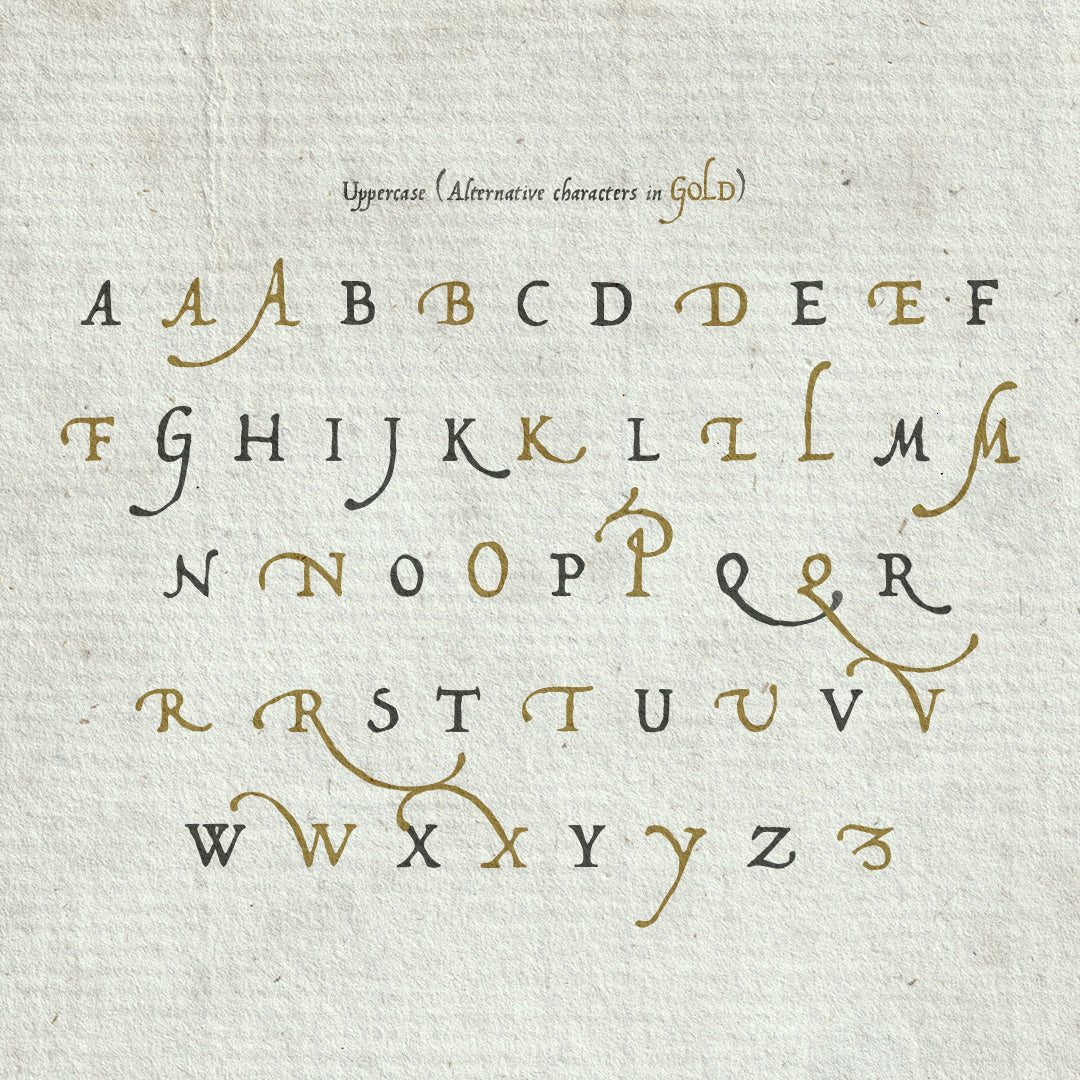 Uppercase (Alternative characters in GOLD)
A A A B B C D D E E F
F G H I J K K L L L M M
N N O O P P Q Q R
R R S T T U U V V
W W X X Y Y Z Z